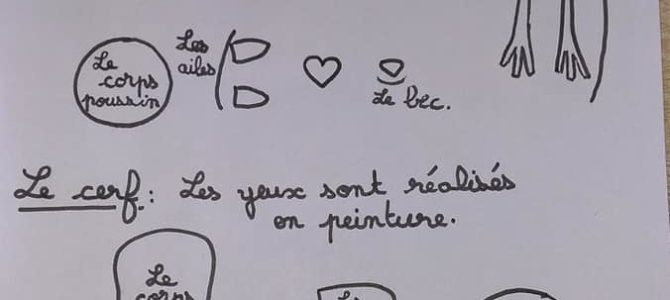 Le
corps
poussin
Les
ailes
Le bec.
Le cerf : Les yeux sont réalisés
en peinture.
Le
corps
Les